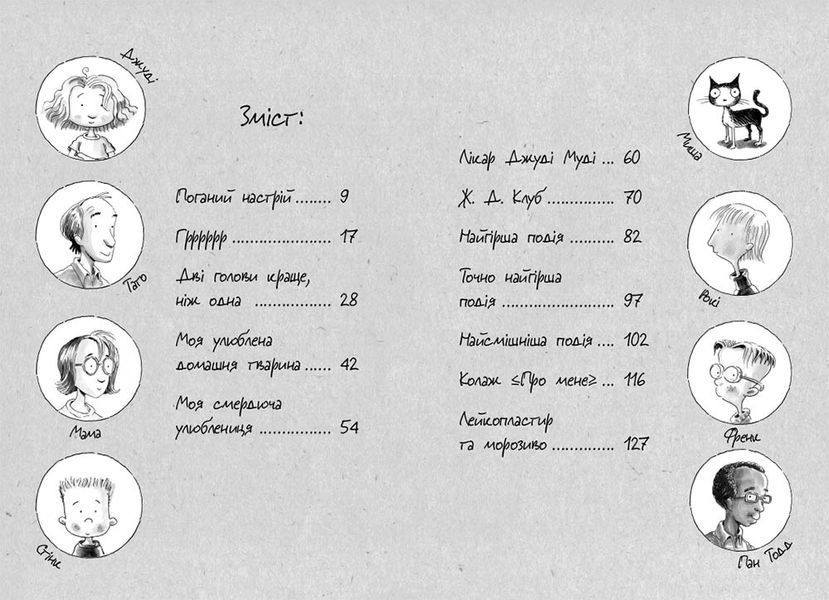 Джуді
Тато
Мама
Стінк
Зміст:
Поганий настрій........ 9
Грррррр ....................... 17
Дві голови краще,
ніж одна .................. 28
Моя улюблена
домашня тварина ...... 42
Моя смердюча
улюблениця ................. 54
Лікар Джуді Муді ... 60
Ж. Д. Клуб ................ 70
Найгірша подія .......... 82
Точно найгірша
подія .......................... 97
Найсмішніша подія .... 102
Колаж ≤Про мене≥ ... 116
Лейкопластир
та морозиво ............... 127
Миша
Рокі
Френк
Пан Тодд